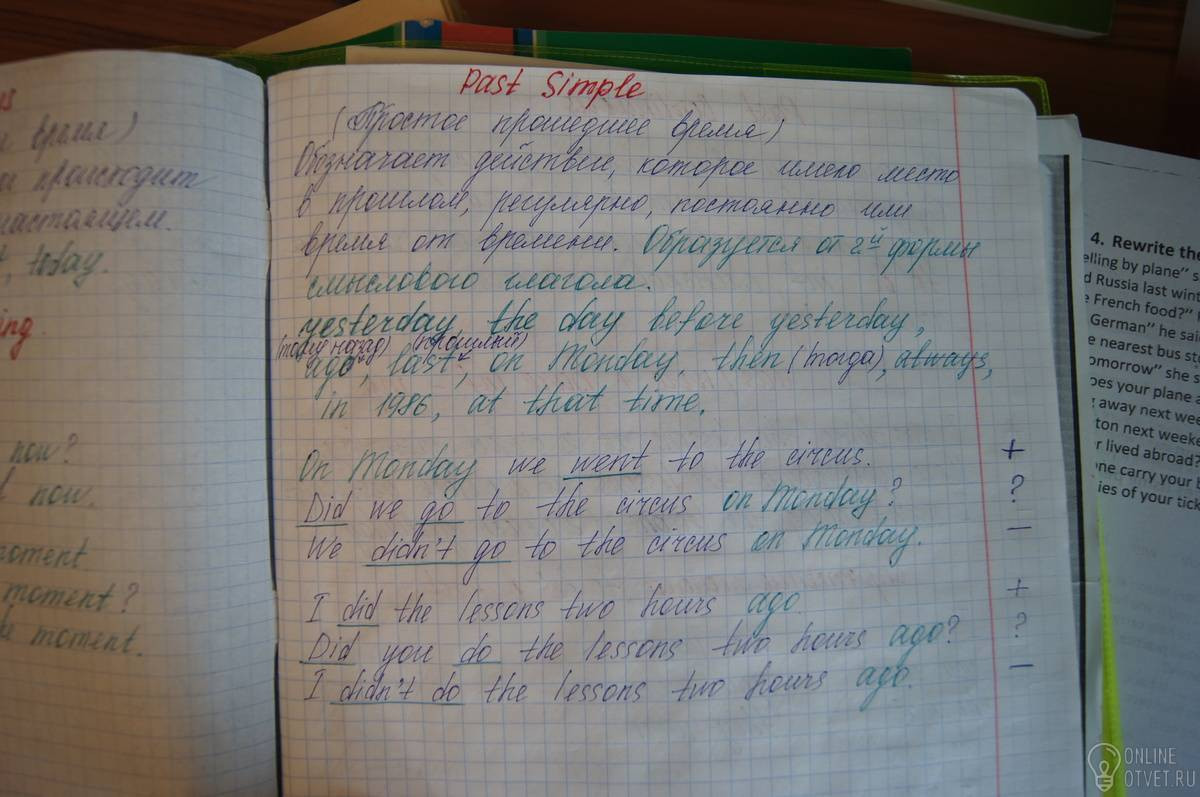 Past Simple
(Простое прошедшее время)
Обозначает действие, которое имело место
в прошлом, регулярно, постоянно или
время от времени. Образуется от 2ой формы
смыслового глагола.
yesterday, the day before yesterday,
(тому назад) (прошлый)
ago, last, on Monday, then (тогда), always,
in 1986, at that time.
On Monday we went to the circus. +
Did we go to the circus on Monday? ?
We didn't go to the circus on Monday. –
I did the lessons two hours ago. +
Did you do the lessons two hours ago? ?
I didn't do the lessons two hours ago. –
время)
происходит
настоящем.
today.
now?
now.
moment
moment?
moment.
4. Rewrite the
by plane" s
Russia last
French food?"
German" he
nearest bus
she
your plane
away next
next
lived abroad?
carry your
of your
ONLINE
OTVET.RU